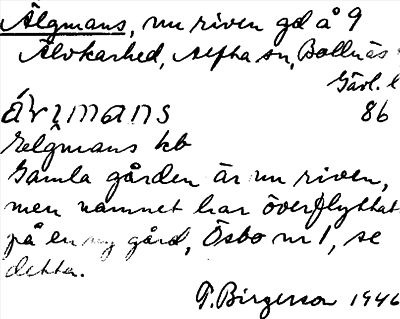 Älgmans, nu riven gd å 9
Älvkarhed, Alfta sn, Bollnäs
Gävl. l
86
Elgmans kb
Gamla gården är nu riven,
men namnet har överflyttat
på en ny gård, Ösbo nr 1, se
detta.
P. Birgerson 1946